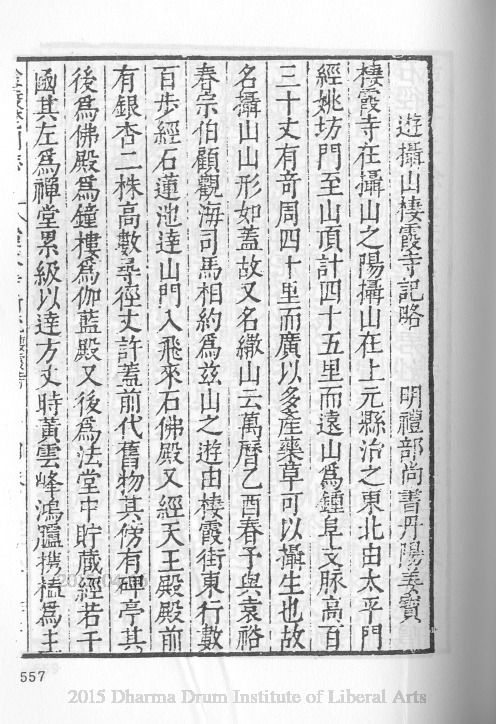 遊攝山棲霞寺記略　明禮部尚書丹陽姜寶
棲霞寺在攝山之陽攝山在上元縣治之東北由太平門
經姚坊門至山頂計四十五里而遠山爲鍾阜支脉高百
三十丈有奇周四十里而廣以多產藥草可以攝生也故
名攝山山形如蓋故又名繖山云萬曆乙酉春予與袁裕
春宗伯顧觀海司馬相約爲兹山之遊由棲霞街東行數
百步經石蓮池達山門入飛來石佛殿又經天王殿殿前
有銀杏二株高數尋徑丈許蓋前代舊物其傍有碑亭其
後爲佛殿爲鐘樓爲伽藍殿又後爲法堂中貯藏經若干
凾其左爲禪堂累級以達方丈時黃雲峰鴻臚携榼爲主
557
2015 Dharma Drum Institute of Liberal Arts